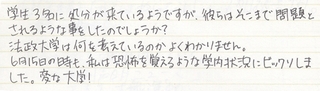 学生3名に処分が来ているようですが、彼らはそこまで問題と
されるような事をしたのでしょうか？
法政大学は何を考えているのかよくわかりません。
6月15日の時も、私は恐怖を覚えるような学内状況にビックリしま
した。変な大学！